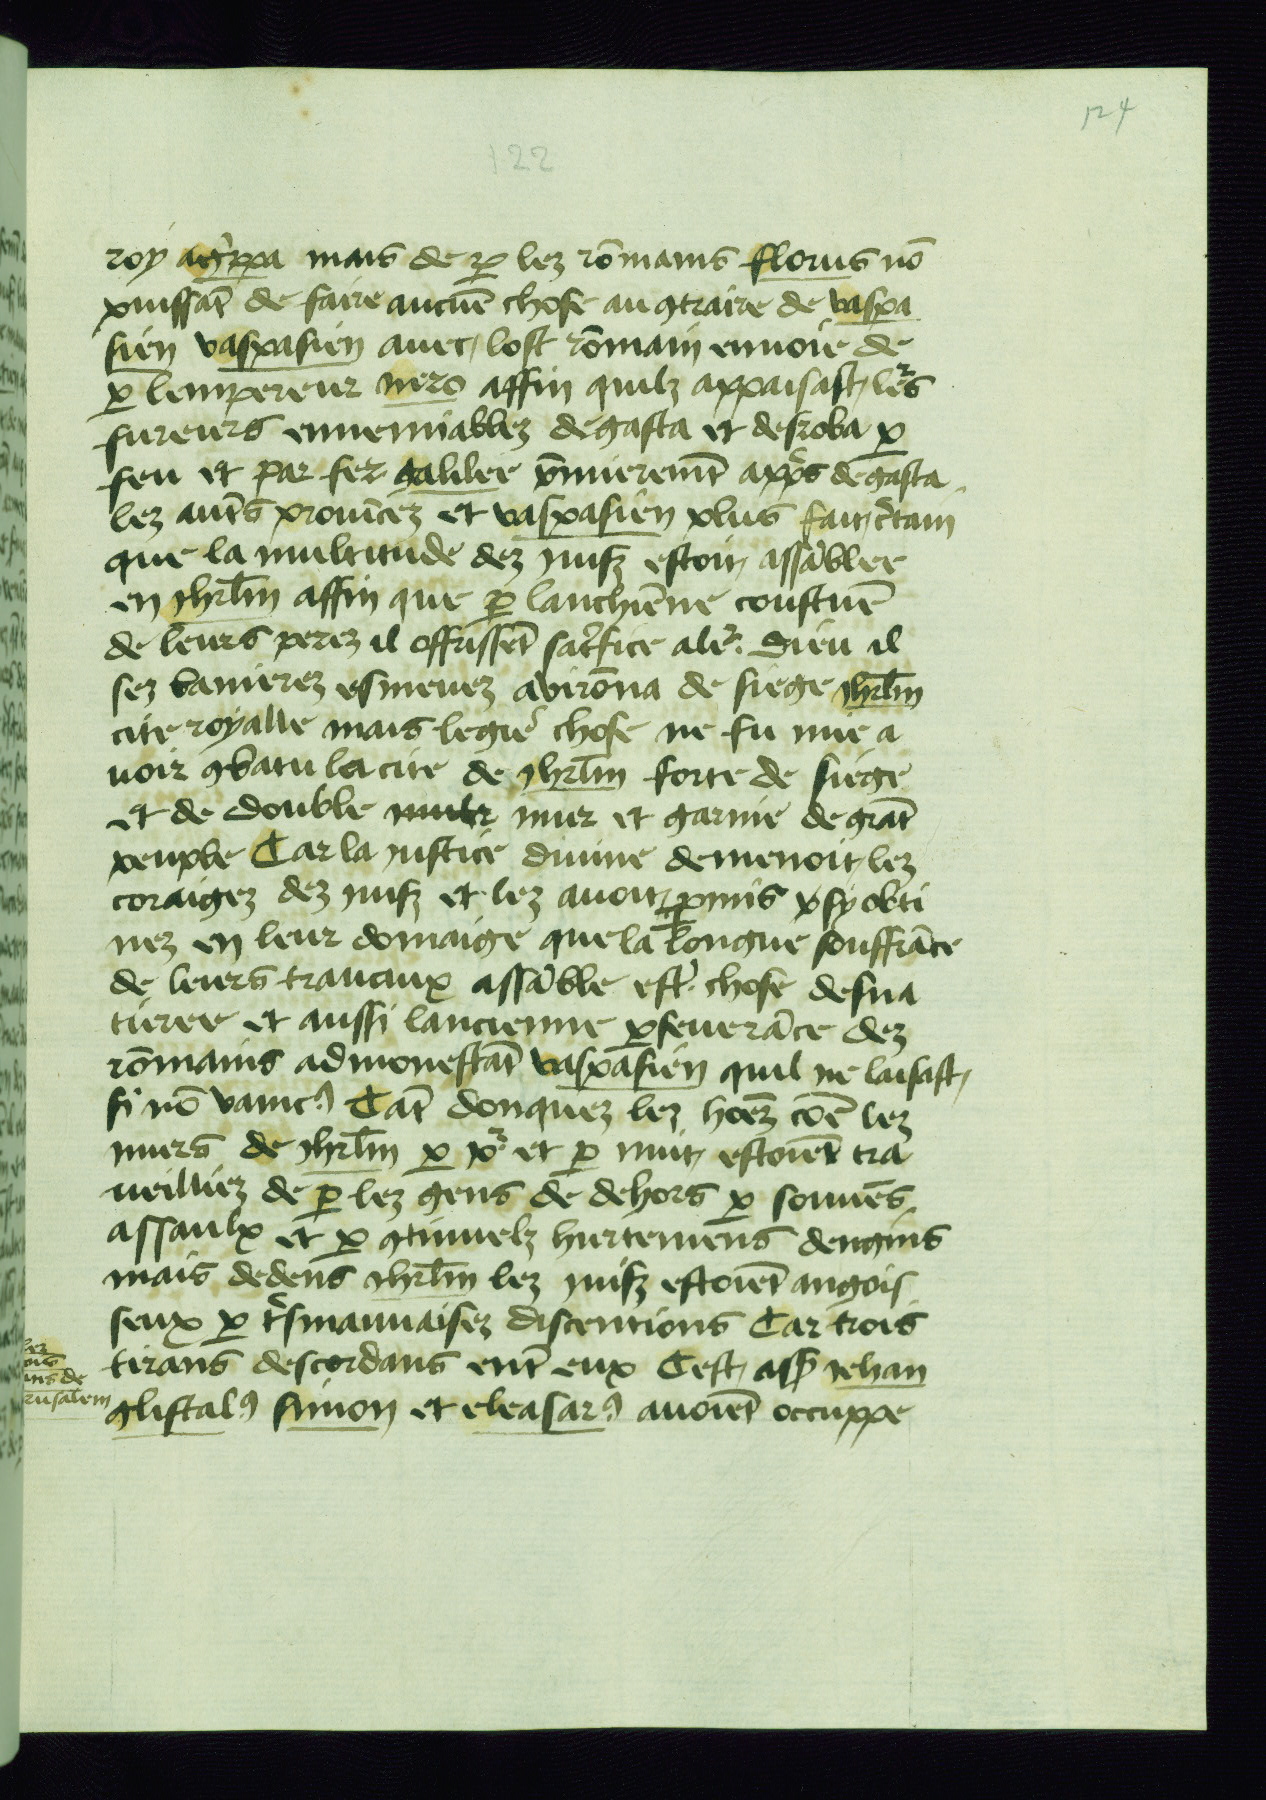 124
122
roy ag̾ppa mais de ꝑ lez rōmains florus nō
puissāt de faire aucūe chose au ꝯtraire de vaspa
sien vaspasien avec lost rōmain envoie de
ꝑ lempereur nero affin quilz appaisast leʳs
fureurs ennemiablez degasta et desroba ꝑ
feu et par fer galilee p̄mieremēt app̾s degasta
lez aut̄s provīcez et vaspasien plus fait c̾tain
que la multitude dez juifz estoit assāblee
en jhrl̄m affin que ꝑ lanchiēne coustūe
de leurs perez il offrissēt sac̾fice a leʳ dieu il
sez banierez esmeuez avirōna de siege jhrl̄m
cite royalle mais legie̾ chose ne fu mie a
voir ꝯbatu la cite de jhrl̄m forte de siege
et de double mur et garnie de grāt
peuple Car la justice divine demenoit lez
coraigez dez juifz et lez avoit ꝑmis sy obti
nez en leur domaige que la longue souffrāce
de leurs travaux assāble est̾ chose desna
turee et aussi lancienne ꝑseverāce dez
rōmains admonestāt vaspasien quil ne laisast
si nō vaincꝰ Cāt donquez lez hōez cōe lez
murs de jhrl̄m ꝑ joʳ et ꝑ nuit estoiēt tra
veilliez de ꝑ lez gens de dehors ꝑ souvēs
assaulx et ꝑ ꝯtinuelz hurtemens dengins
mais dedens jhrl̄m lez juifz estoiēt angois
seux ꝑ t̾smauvaisez discentions Car trois
tirans descordans ent̄ eux Cest ass̄ jehan
gliscalꝰ simon et eleasarꝰ avoiēt occuppe
lez
ois
ans de
rusalem